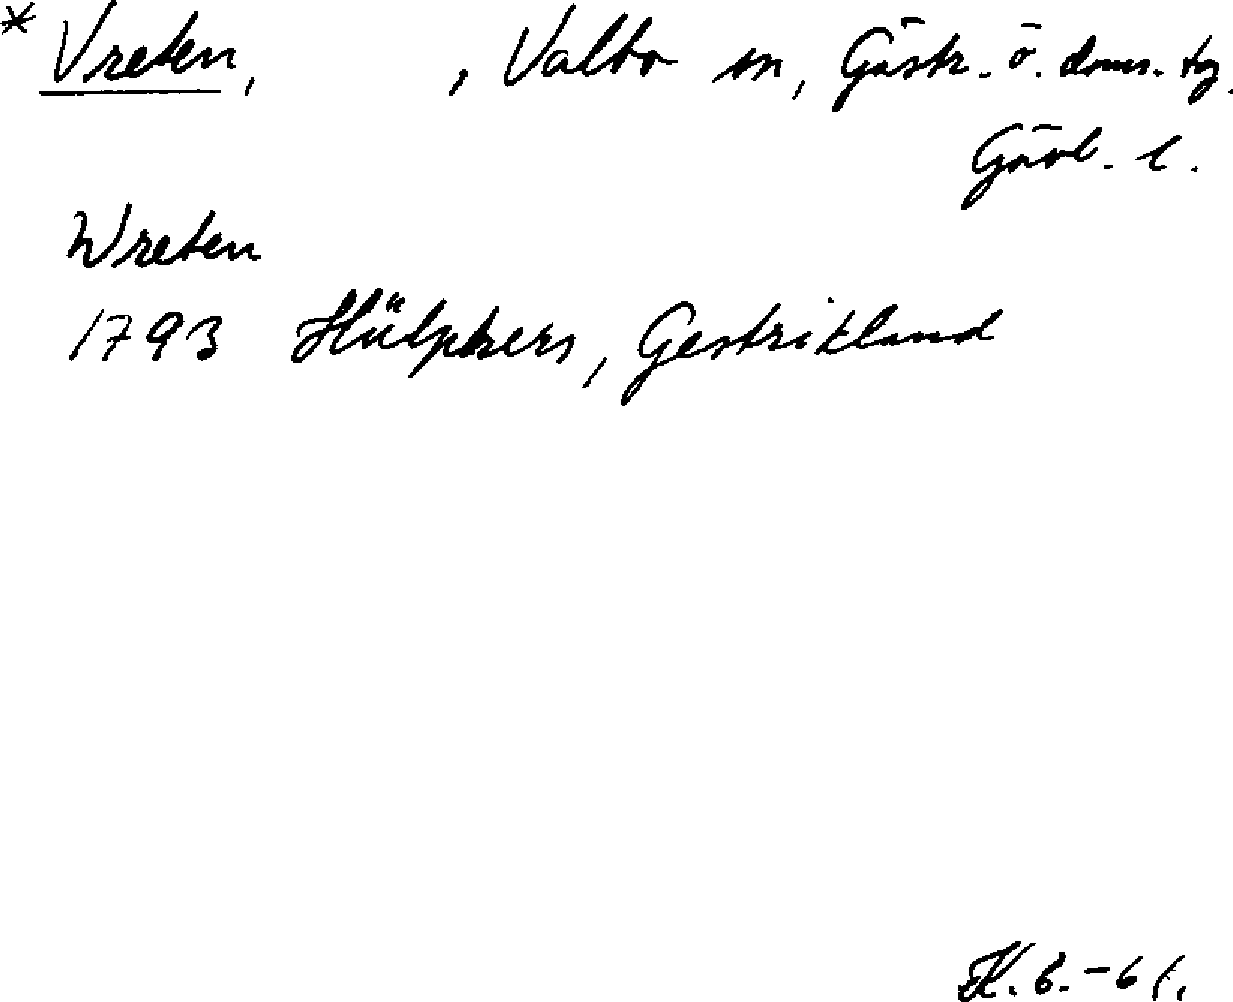 * Vreten, , Valbo sn, Gästr. ö. doms. tg.
Gävl. l.
Wreten
1793 Hülphers, Gestrikland
H. B. -61.